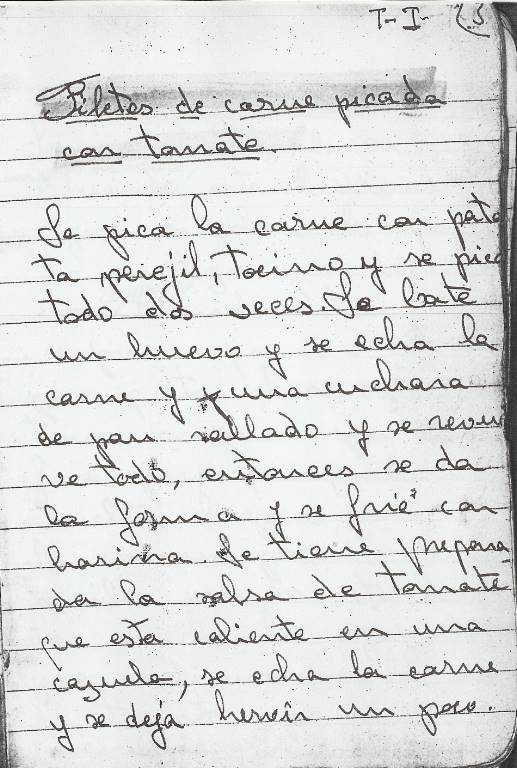 T-I-
Filetes de carne picada
con tomate.
Se pica la carne con pata
ta perejil, tocino y se pica
todo dos veces. Se bate
un huevo y se echa la
carne y una cuchara
de pan rallado y se revuel
ve todo, entonces se da
la forma y se frie con
harina. Se tiene prepara
da la salsa de tomate
que esta caliente en una
cazuela, se echa la carne
y se deja hervir un poco.